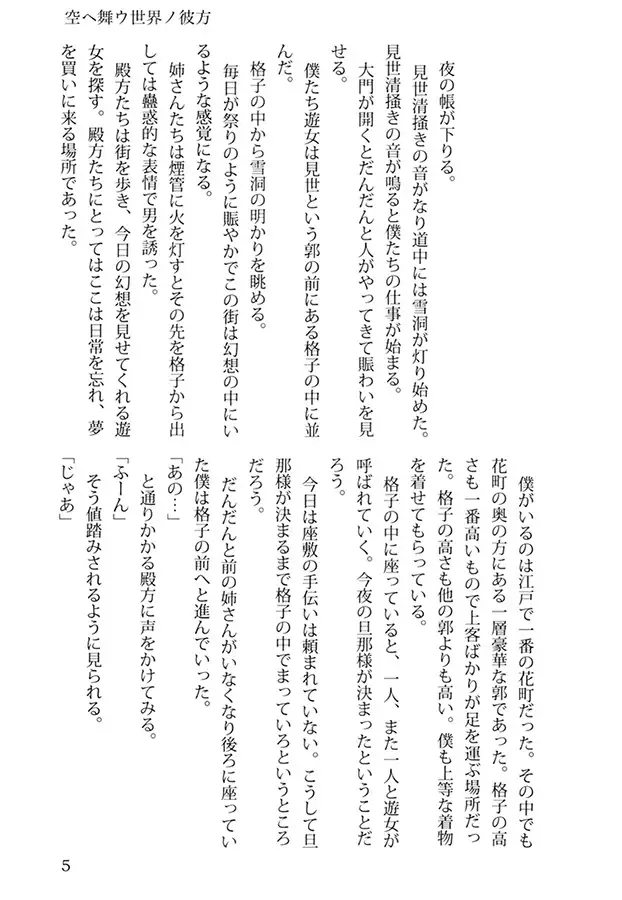 空へ舞ウ世界ノ彼方
夜の帳が下りる。
見世清掻きの音がなり道中には雪洞が灯り始めた。
見世清掻きの音が鳴ると僕たちの仕事が始まる。
大門が開くとだんだんと人がやってきて賑わいを見
せる。
僕たち遊女は見世という郭の前にある格子の中に並
んだ。
格子の中から雪洞の明かりを眺める。
毎日が祭りのように賑やかでこの街は幻想の中にい
るような感覚になる。
姉さんたちは煙管に火を灯すとその先を格子から出
しては蠱惑的な表情で男を誘った。
殿方たちは街を歩き、今日の幻想を見せてくれる遊
女を探す。殿方たちにとってはここは日常を忘れ、夢
を買いに来る場所であった。
僕がいるのは江戸で一番の花町だった。その中でも
花町の奥の方にある一層豪華な郭であった。格子の高
さも一番高いもので上客ばかりが足を運ぶ場所だっ
た。格子の高さも他の郭よりも高い。僕も上等な着物
を着せてもらっている。
格子の中に座っていると、一人、また一人と遊女が
呼ばれていく。今夜の旦那様が決まったということだ
ろう。
今日は座敷の手伝いは頼まれていない。こうして旦
那様が決まるまで格子の中でまっていろというところ
だろう。
だんだんと前の姉さんがいなくなり後ろに座ってい
た僕は格子の前へと進んでいった。
「あの…」
と通りかかる殿方に声をかけてみる。
「ふーん」
そう値踏みされるように見られる。
「じゃあ」
5